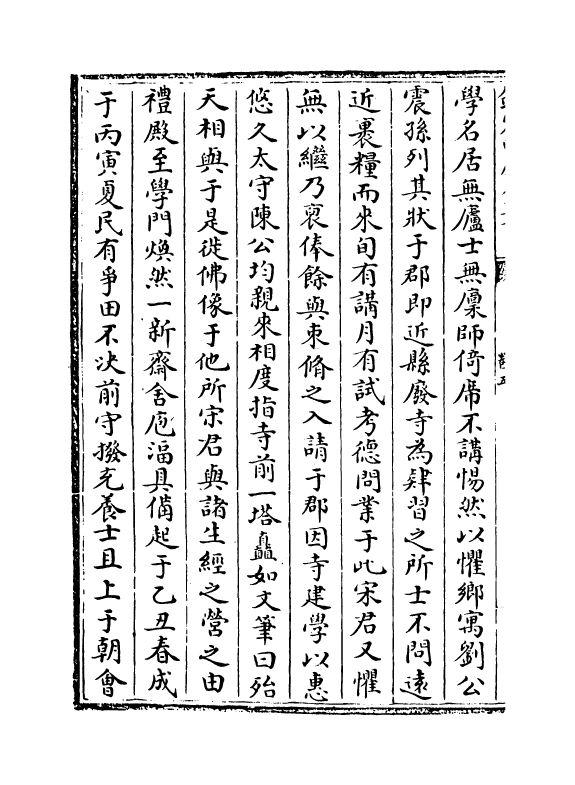 學名居無廬士無廩師倚席不講惕然以懼鄉寓劉公
震孫列其狀于郡即近縣廢寺為肄習之所士不問遠
近裹糧而來旬有講月有試考德問業于此宋君又懼
無以繼乃裒俸餘與束脩之入請于郡因寺建學以惠
悠久太守陳公均親來相度指寺前一塔矗如文筆曰殆
天相與于是徙佛像于他所宋君與諸生經之營之由
禮殿至學門煥然一新齋舍庖湢具備起于乙丑春成
于丙寅夏民有爭田不决前守撥充養士且上于朝會